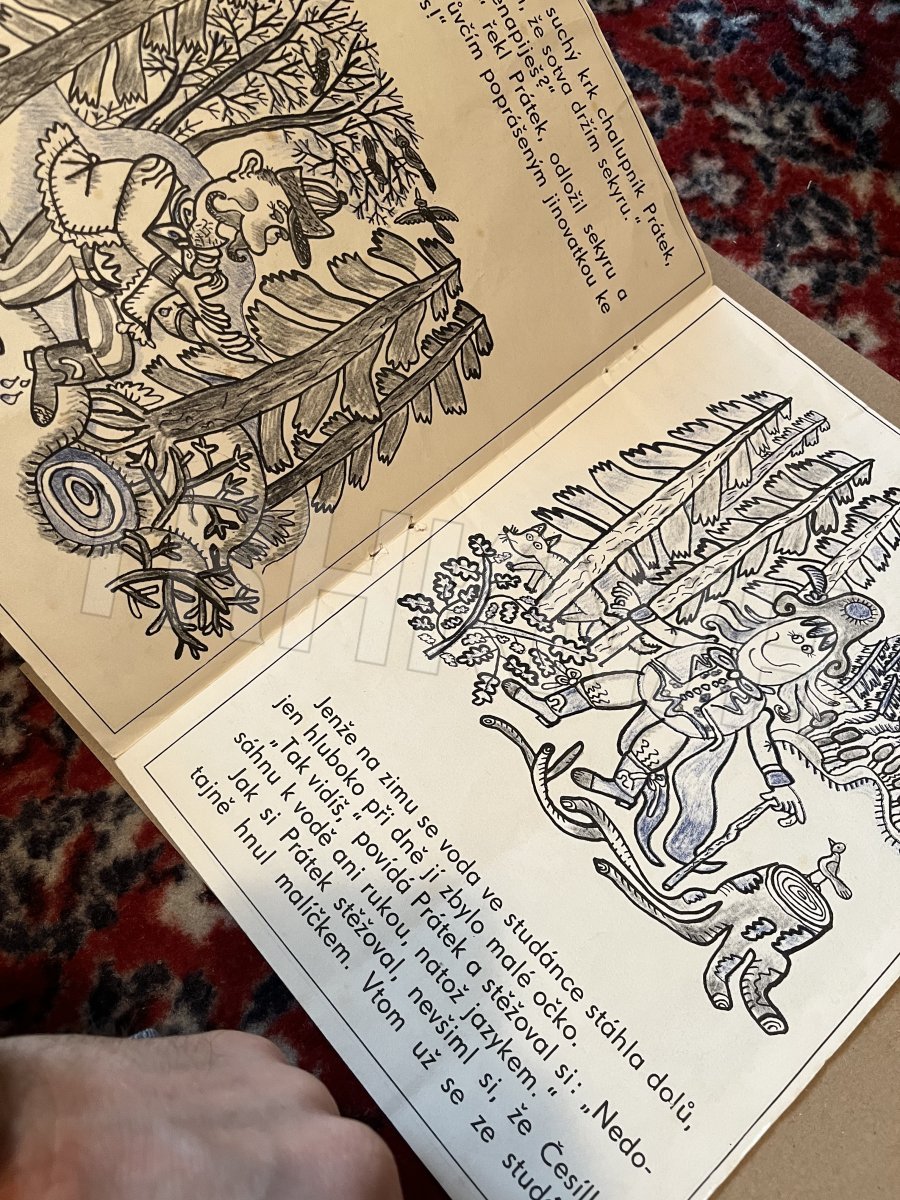 suchý krk chalupník Prátek,
že sotva držím sekyru."
enapiješ?"
řekl Prátek, odložil sekyru a
ůvčím poprášeným jinovatkou ke
s!"
Jenže na zimu se voda ve studánce stáhla dolů,
jen hluboko při dně jí zbylo malé očko.
„Tak vidíš," povídá Prátek a stěžoval si: „Nedo-
sáhnu k vodě ani rukou, natož jazykem."
Jak si Prátek stěžoval, nevšiml si, že Česíl
tajně hnul malíčkem. Vtom už se ze stud